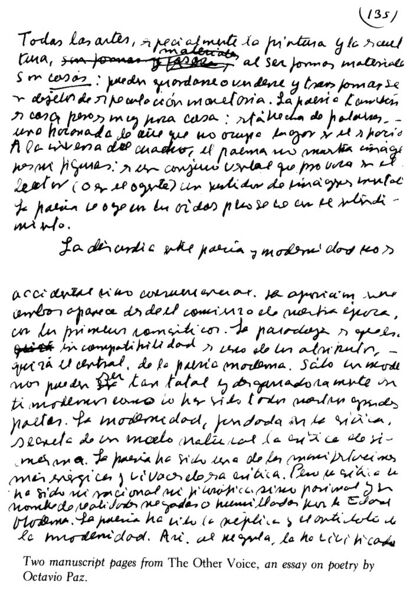 (135)
Todas las artes, especialmente la pintura y la escul
tura, al ser formas materiales
son cosas: pueden guardarse o venderse y transformarse
en objetos de especulación monetaria. La poesía también
es cosa pero es muy poca cosa: está hecha de palabras, -
una bocanada de aire que no ocupa lugar en el espacio
A la inversa del cuadro, el poema no muestra imáge
nes ni figuras: es un conjuro verbal que provoca en el
lector (o en el oyente) un surtidor de imágenes mentales
La poesía se oye con los oídos pero se ve con el entendi-
miento.
La discordia entre poesía y modernidad no es
accidental sino consubstancial. La oposición entre
ambas aparece desde el comienzo de nuestra época,
con los primeros románticos. La paradoja es que
incompatibilidad es uno de los atributos, -
quizá el central, de la poesía moderna. Sólo los
pueden ser tan total y desgarradoramente an
ti modernos como lo han sido todos nuestros grandes
poetas. La modernidad, fundada en la crítica,
secreta de un modo natural la crítica de sí
misma. La poesía ha sido una de las manifestaciones
más enérgicas y vivaces de esa crítica. Pero su crítica no
ha sido ni racional ni filosófica sino pasional y en
nombre de realidades negadas o humilladas por la Edad
Moderna. La poesía ha sido la réplica y el antídoto de
la modernidad. Así, al negarla, la ha vivificado
Two manuscript pages from The Other Voice, an essay on poetry by
Octavio Paz.